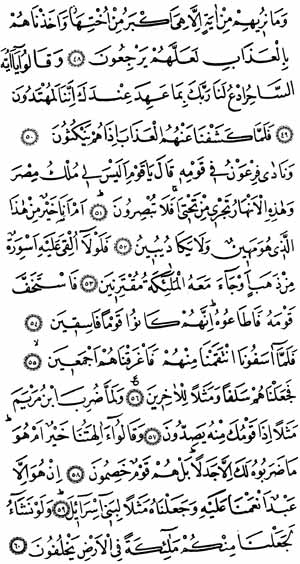 وَمَا نُرِيهِمْ مِنْ اٰيَةٍ اِلَّا هِيَ اَكْبَرُ مِنْ اُخْتِهَا وَاَخَذْنَاهُمْ
بِالْعَذَابِ لَعَلَّهُمْ يَرْجِعُونَ ﴿٤٨﴾ وَقَالُوا يَآ اَيُّهَ
السَّاحِرُ ادْعُ لَنَا رَبَّكَ بِمَا عَهِدَ عِنْدَكَ اِنَّنَا لَمُهْتَدُونَ
﴿٤٩﴾ فَلَمَّا كَشَفْنَا عَنْهُمُ الْعَذَابَ اِذَا هُمْ يَنْكُثُونَ ﴿٥٠﴾
وَنَادٰى فِرْعَوْنُ فِي قَوْمِهِ قَالَ يَا قَوْمِ اَلَيْسَ لِي مُلْكُ مِصْرَ
وَهٰذِهِ الْاَنْهَارُ تَجْرِي مِنْ تَحْتِي اَفَلَا تُبْصِرُونَ ﴿٥١﴾ اَمْ اَنَا۬ خَيْرٌ مِنْ هٰذَا
الَّذِي هُوَ مَهِينٌ وَلَا يَكَادُ يُبِينُ ﴿٥٢﴾ فَلَوْلَا اُلْقِيَ عَلَيْهِ اَسْوِرَةٌ
مِنْ ذَهَبٍ اَوْ جَآءَ مَعَهُ الْمَلٰٓئِكَةُ مُقْتَرِنِينَ ﴿٥٣﴾ فَاسْتَخَفَّ
قَوْمَهُ فَاَطَاعُوهُ اِنَّهُمْ كَانُوا قَوْمًا فَاسِقِينَ ﴿٥٤﴾
فَلَمَّا اٰسَفُونَا انْتَقَمْنَا مِنْهُمْ فَاَغْرَقْنَاهُمْ اَجْمَعِينَ ﴿٥٥﴾
فَجَعَلْنَاهُمْ سَلَفًا وَمَثَلًا لِلْاٰخِرِينَ ﴿٥٦﴾ وَلَمَّا ضُرِبَ ابْنُ مَرْيَمَ
مَثَلًا اِذَا قَوْمُكَ مِنْهُ يَصِدُّونَ ﴿٥٧﴾ وَقَالُوا ءَاٰلِهَتُنَا خَيْرٌ اَمْ هُوَ
مَا ضَرَبُوهُ لَكَ اِلَّا جَدَلًا بَلْ هُمْ قَوْمٌ خَصِمُونَ ﴿٥٨﴾ اِنْ هُوَ اِلَّا
عَبْدٌ اَنْعَمْنَا عَلَيْهِ وَجَعَلْنَاهُ مَثَلًا لِبَنِي اِسْرَآئِيلَ ﴿٥٩﴾ وَلَوْ نَشَآءُ
لَجَعَلْنَا مِنْكُمْ مَلٰٓئِكَةً فِي الْاَرْضِ يَخْلُفُونَ ﴿٦٠﴾